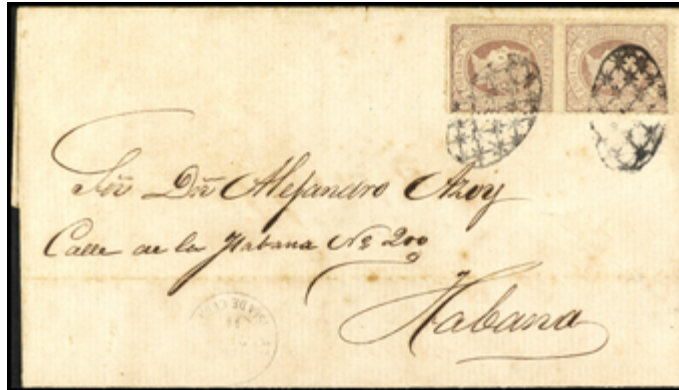 Sōr Dōn Alejandro Azoy
Calle de la Habana No 200
Habana